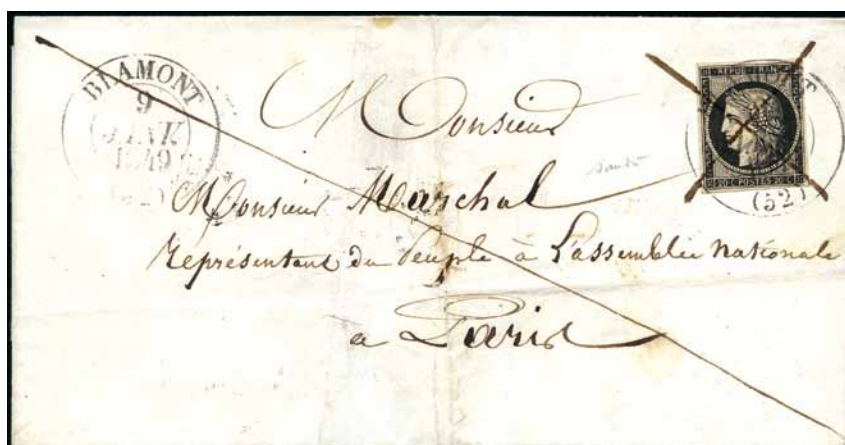 BLAMONT
9
JANV
1849
REPUB. FRANC.
20 C POSTES 20 C
T
(52)
Monsieur
Monsieur Marchal
représentant du Peuple à L'assemblée nationale
a Paris